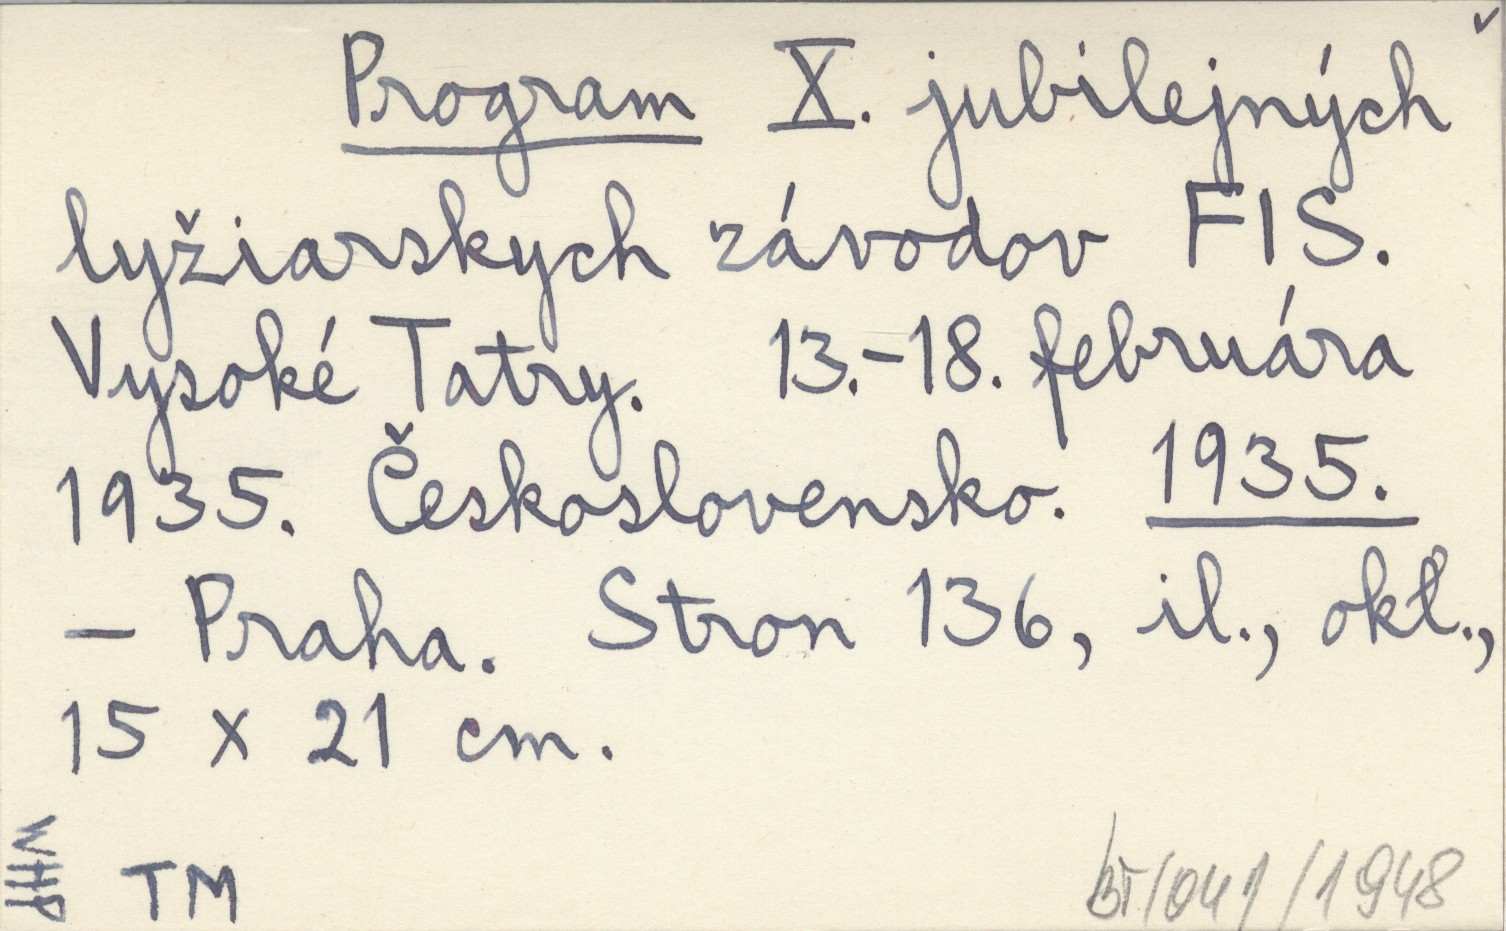 Program X. jubilejných
lyžiarskych závodov FIS.
Vysoké Tatry. 13.-18. februára
1935. Československo. 1935.
— Praha. Stron 136, il., okł.,
15 x 21 cm.
WHP
TM
/1948